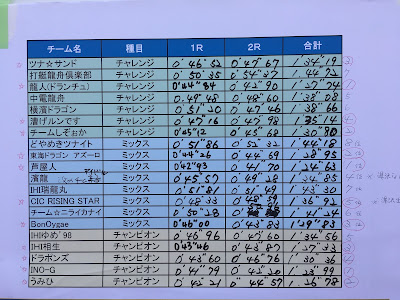 チーム名 種目 1R 2R 合計
ツナ☆サンド チャレンジ 0'46"52 0'47"67 1'34"19
打艇龍舟倶楽部 チャレンジ 0'50"35 0'54"37 1'44"72
龍人(ドランチュ) チャレンジ 0'44"84 0'42"90 1'27"74
中電龍舟 チャレンジ 0'49"48 0'48"60 1'38"08
横濱ドラゴン チャレンジ 0'51"20 0'47"46 1'38"66
漕げルンです チャレンジ 0'47"16 0'47"98 1'35"14
チームしぞぉか チャレンジ 0'45"12 0'45"68 1'30"80
どやめきツナイト ミックス 0'51"86 0'52"32 1'44"18
東海ドラゴン アズーロ ミックス 0'44"26 0'44"69 1'28"95
芦屋人 ミックス 0'42"93 0'41"70 1'24"63
濱龍 ミックス 0'45"57 0'49"28 1'34"85
IHI瑞龍丸 ミックス 0'51"81 0'51"49 1'43"30
CIC RISING STAR ミックス 0'48"33 0'48"59 1'36"92
チーム☆ニライカナイ ミックス 0'50"28 1'41"24
BonOygae ミックス 0'46"00 0'43"83 1'29"83
IHIゆめ'98 チャンピオン 0'46"96 0'45"60
IHI相生 チャンピオン 0'43"46 0'43"87 1'27"33
ドラポンズ チャンピオン 0'43"60 0'46"76 1'30"36
INO-G チャンピオン 0'41"79 0'42"20 1'23"99
うみひ チャンピオン 0'42"21 0'44"57 1'26"78